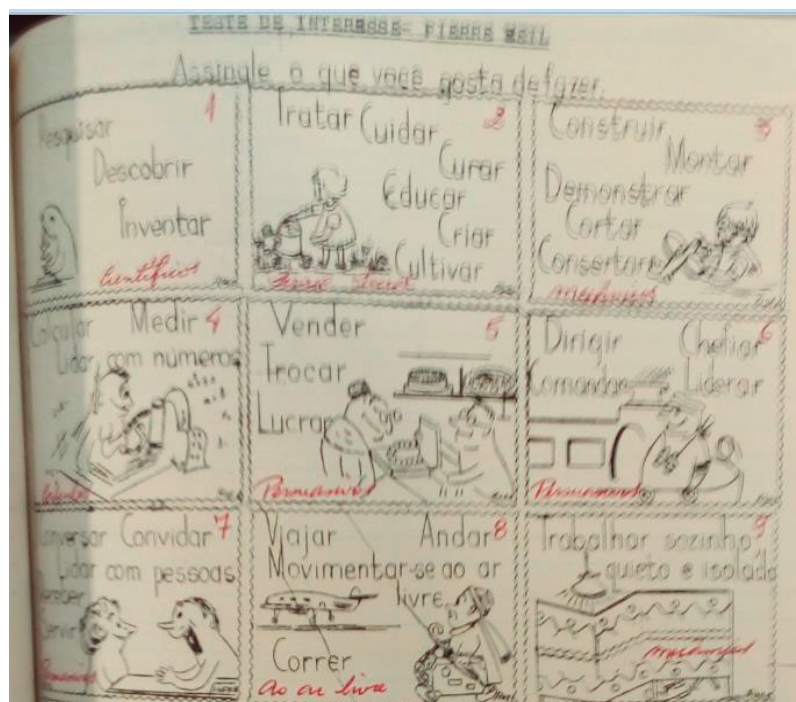 TESTE DE INTERESSE- PIERRE WEIL
Assinale o que você gosta de fazer.
1
Pesquisar
Descobrir
Inventar
Científicos
2
Tratar Cuidar
Curar
Educar
Criar
Cultivar
Social
3
Construir
Montar
Demonstrar
Cortar
Consertar
mecânicos
4
Calcular Medir
Lidar com números
5
Vender
Trocar
Lucrar
Persuasivos
6
Dirigir Chefiar
Comandar Liderar
Persuasivos
7
Conversar Convidar
Lidar com pessoas
Receber
Servir
Persuasivos
8
Viajar Andar
Movimentar-se ao ar
livre
Correr
Ao ar livre
9
Trabalhar sozinho
quieto e isolado